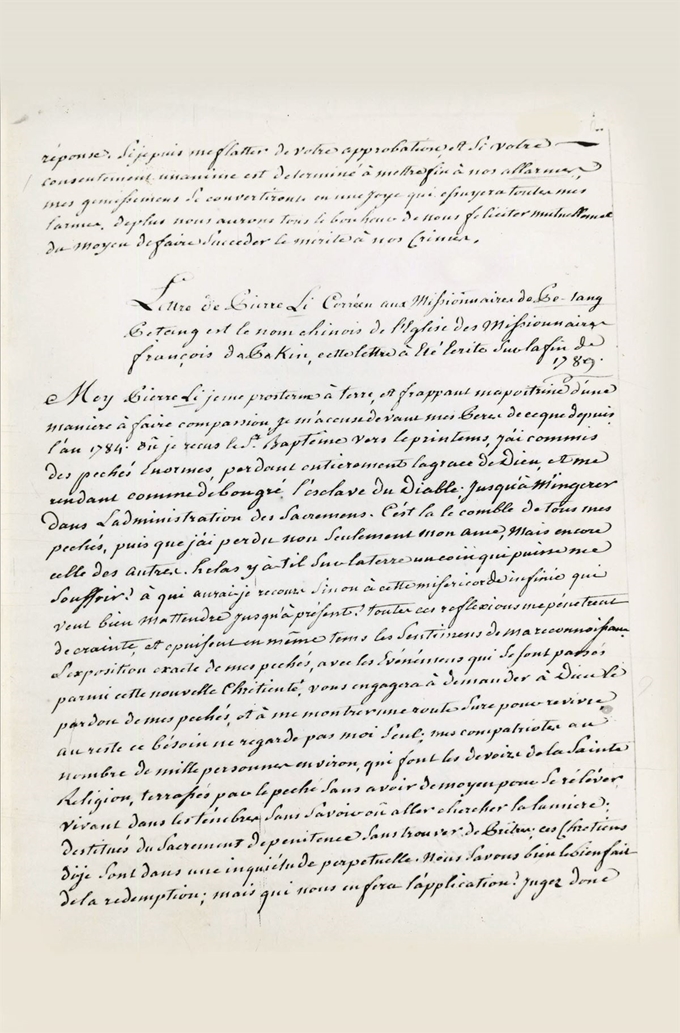 réponse. Si je puis me flatter de votre approbation, et si votre
consentement unanime est determiné à mettre fin à nos allarmes,
mes gemissemens se convertiront en une joye qui essuyera toutes mes
larmes. deplus nous aurons tous le bonheur de nous feliciter mutuellement
du moyen de faire succeder le mérite à nos Crimes.
Lettre de Pierre Li Corréen aux Missionnaires de Pe-tang
Petang est le nom chinois de l'Eglise des Missionnaires
françois de Pekin, cette lettre à été écrite sur la fin de
1789.
Moy Pierre Li je me prosterne à terre, et frappant ma poitrine d'une
manière à faire compassion, je m'accuse devant mes Peres de ce que depuis
l'an 1784. où je reçus le St. Baptême vers le printems, j'ai commis
des pechés Enormes, perdant entierement la grace de Dieu, et me
rendant comme de bon gré l'esclave du Diable jusqu'à M'ingerer
dans L'administration des Sacremens. C'est la le comble de tous mes
pechés, puis que j'ai perdu non seulement mon ame, Mais encore
celle des autres. helas y a-t'il sur la terre un coin qui puisse me
Souffrir? à qui aurai-je recours sinon à cette misericorde infinie qui
veut bien m'attendre jusqu'à présent? toutes ces reflexions me pénetrent
de crainte, et épuisent en même tems les sentimens de ma reconnoissance
L'exposition exacte de mes pechés, avec les Evénémens qui se sont passés
parmi cette nouvelle Chrétienté, vous engagera à demander à Dieu le
pardon de mes pechés, et à me montrer une route sure pour revivre
au reste ce bésoin ne regarde pas moi seul; mes compatriotes au
nombre de mille personnes environ, qui font les devoirs de la Sainte
Religion, terrassés par le peché sans avoir de moyen pour se réléver
vivant dans les ténébres sans savoir où aller chercher la lumiere;
destitués du Sacrement de penitence sans trouver de Prêtres, ces Chretiens
dije sont dans une inquiétude perpetuelle. Nous savons bien le bienfait
de la redemption; mais qui nous en fera l'application? jugez donc